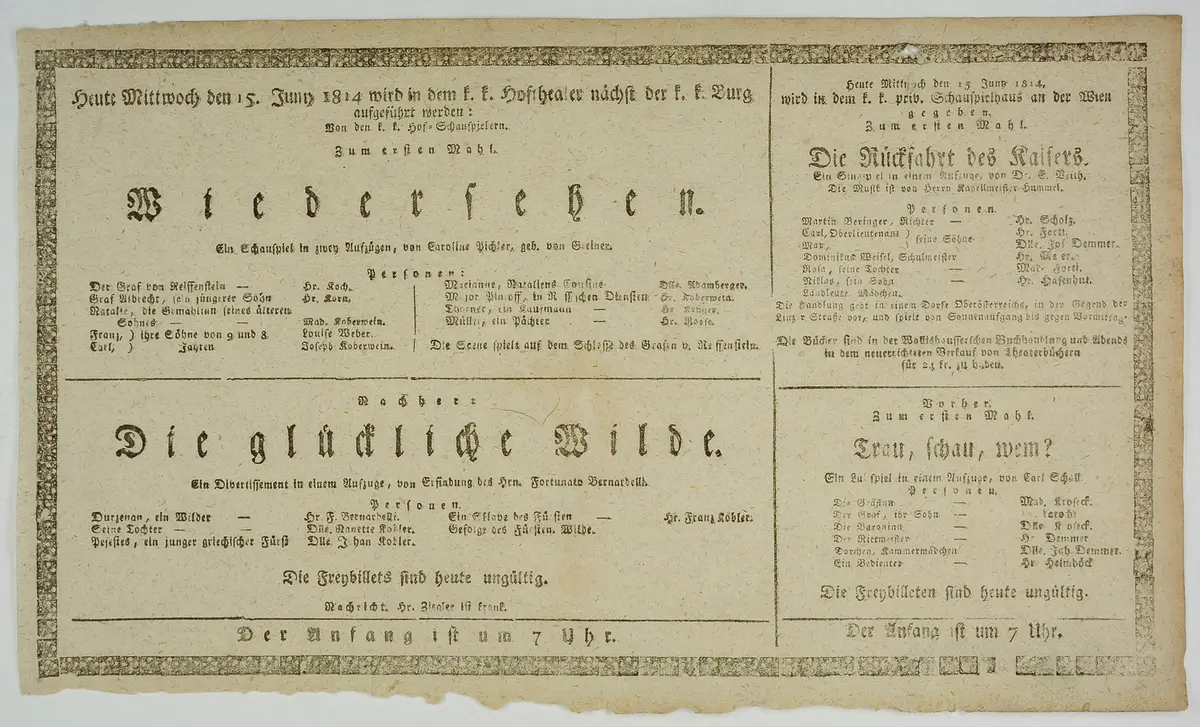 Heute Mittwoch den 15. Juny 1814 wird in dem k. k. Hoftheater nächst der k. k. Burg
aufgeführt werden:
Von den k. k. Hof-Schauspielern.
Zum ersten Mahl.
Wiedersehen.
Ein Schauspiel in zwey Aufzügen, von Caroline Pichler, geb. von Greiner.
Personen:
Der Graf von Reiffenstein — Hr. Koch.
Graf Albrecht, sein jüngerer Sohn Hr. Korn.
Natalie, die Gemahlinn seines älteren
Sohnes — — Mad. Koberwein.
Franz, ) ihre Söhne von 9 und 8 Louise Weber.
Carl, ) Jahren Joseph Koberwein.
Marianne, Nataliens Cousine Dlle. Adamberger.
Major in Diensten Hr. Koberwein.
ein Kaufmann — Hr Krüger.
Müller, ein Pächter — Hr. Roose.
Die Scene spielt auf dem Schlosse des Grafen v. Reiffenstein.
Nachher:
Die glückliche Wilde.
Ein Divertissement in einem Aufzuge, von Erfindung des Hrn. Fortunato Bernardelli.
Personen.
ein Wilder — Hr F. Bernardelli.
Seine Tochter — Dlle. Nanette Kobler.
ein junger griechischer Fürst Dlle. Kobler.
Ein Sklave des Fürsten — Hr. Franz Kobler.
Gefolge des Fürsten. Wilde.
Die Freybillets sind heute ungültig.
Nachricht. Hr. Ziegler ist krank.
Der Anfang ist um 7 Uhr.
Heute Mittwoch den 15 Juny 1814,
wird in dem k. k. priv. Schauspielhaus an der Wien
gegeben.
Zum ersten Mahl.
Die Rückfahrt des Kaisers.
Ein Singspiel in einem Aufzuge, von Dr. E. Veith.
Die Musik ist von Herrn Kapellmeister Hummel.
Personen.
Martin Beringer, Richter — Hr. Scholz.
Carl, Oberlieutenant ) seine Söhne Hr. Forti.
Max, ) Dlle. Jos Demmer.
Dominikus Weisel, Schulmeister Hr.
Rosa, seine Tochter — Mad. Forti.
Niklas, sein Sohn — Hr. Hasenhut.
Landleute. Mädchen.
Die Handlung geht in einem Dorfe Oberösterreichs, in der Gegend der
Linzer Straße vor, und spielt von Sonnenaufgang bis gegen Vormittag.
Die Bücher sind in der Wallishausserschen Buchhandlung und Abends
in dem neuerrichteten Verkauf von Theaterbüchern
für 24 kr. zu haben.
Vorher.
Zum ersten Mahl.
Trau, schau, wem?
Ein Lustspiel in einem Aufzuge, von Carl Schall.
Personen.
Die Gräfinn — Mad. Kroseck.
Der Graf, ihr Sohn —
Die Baroninn — Dlle Kroseck.
Der Rittmeister — Hr Demmer
Dorchen, Kammermädchen Dlle. Jah. Demmer.
Ein Bedienter — Hr Heimböck
Die Freybilleten sind heute ungültig.
Der Anfang ist um 7 Uhr.